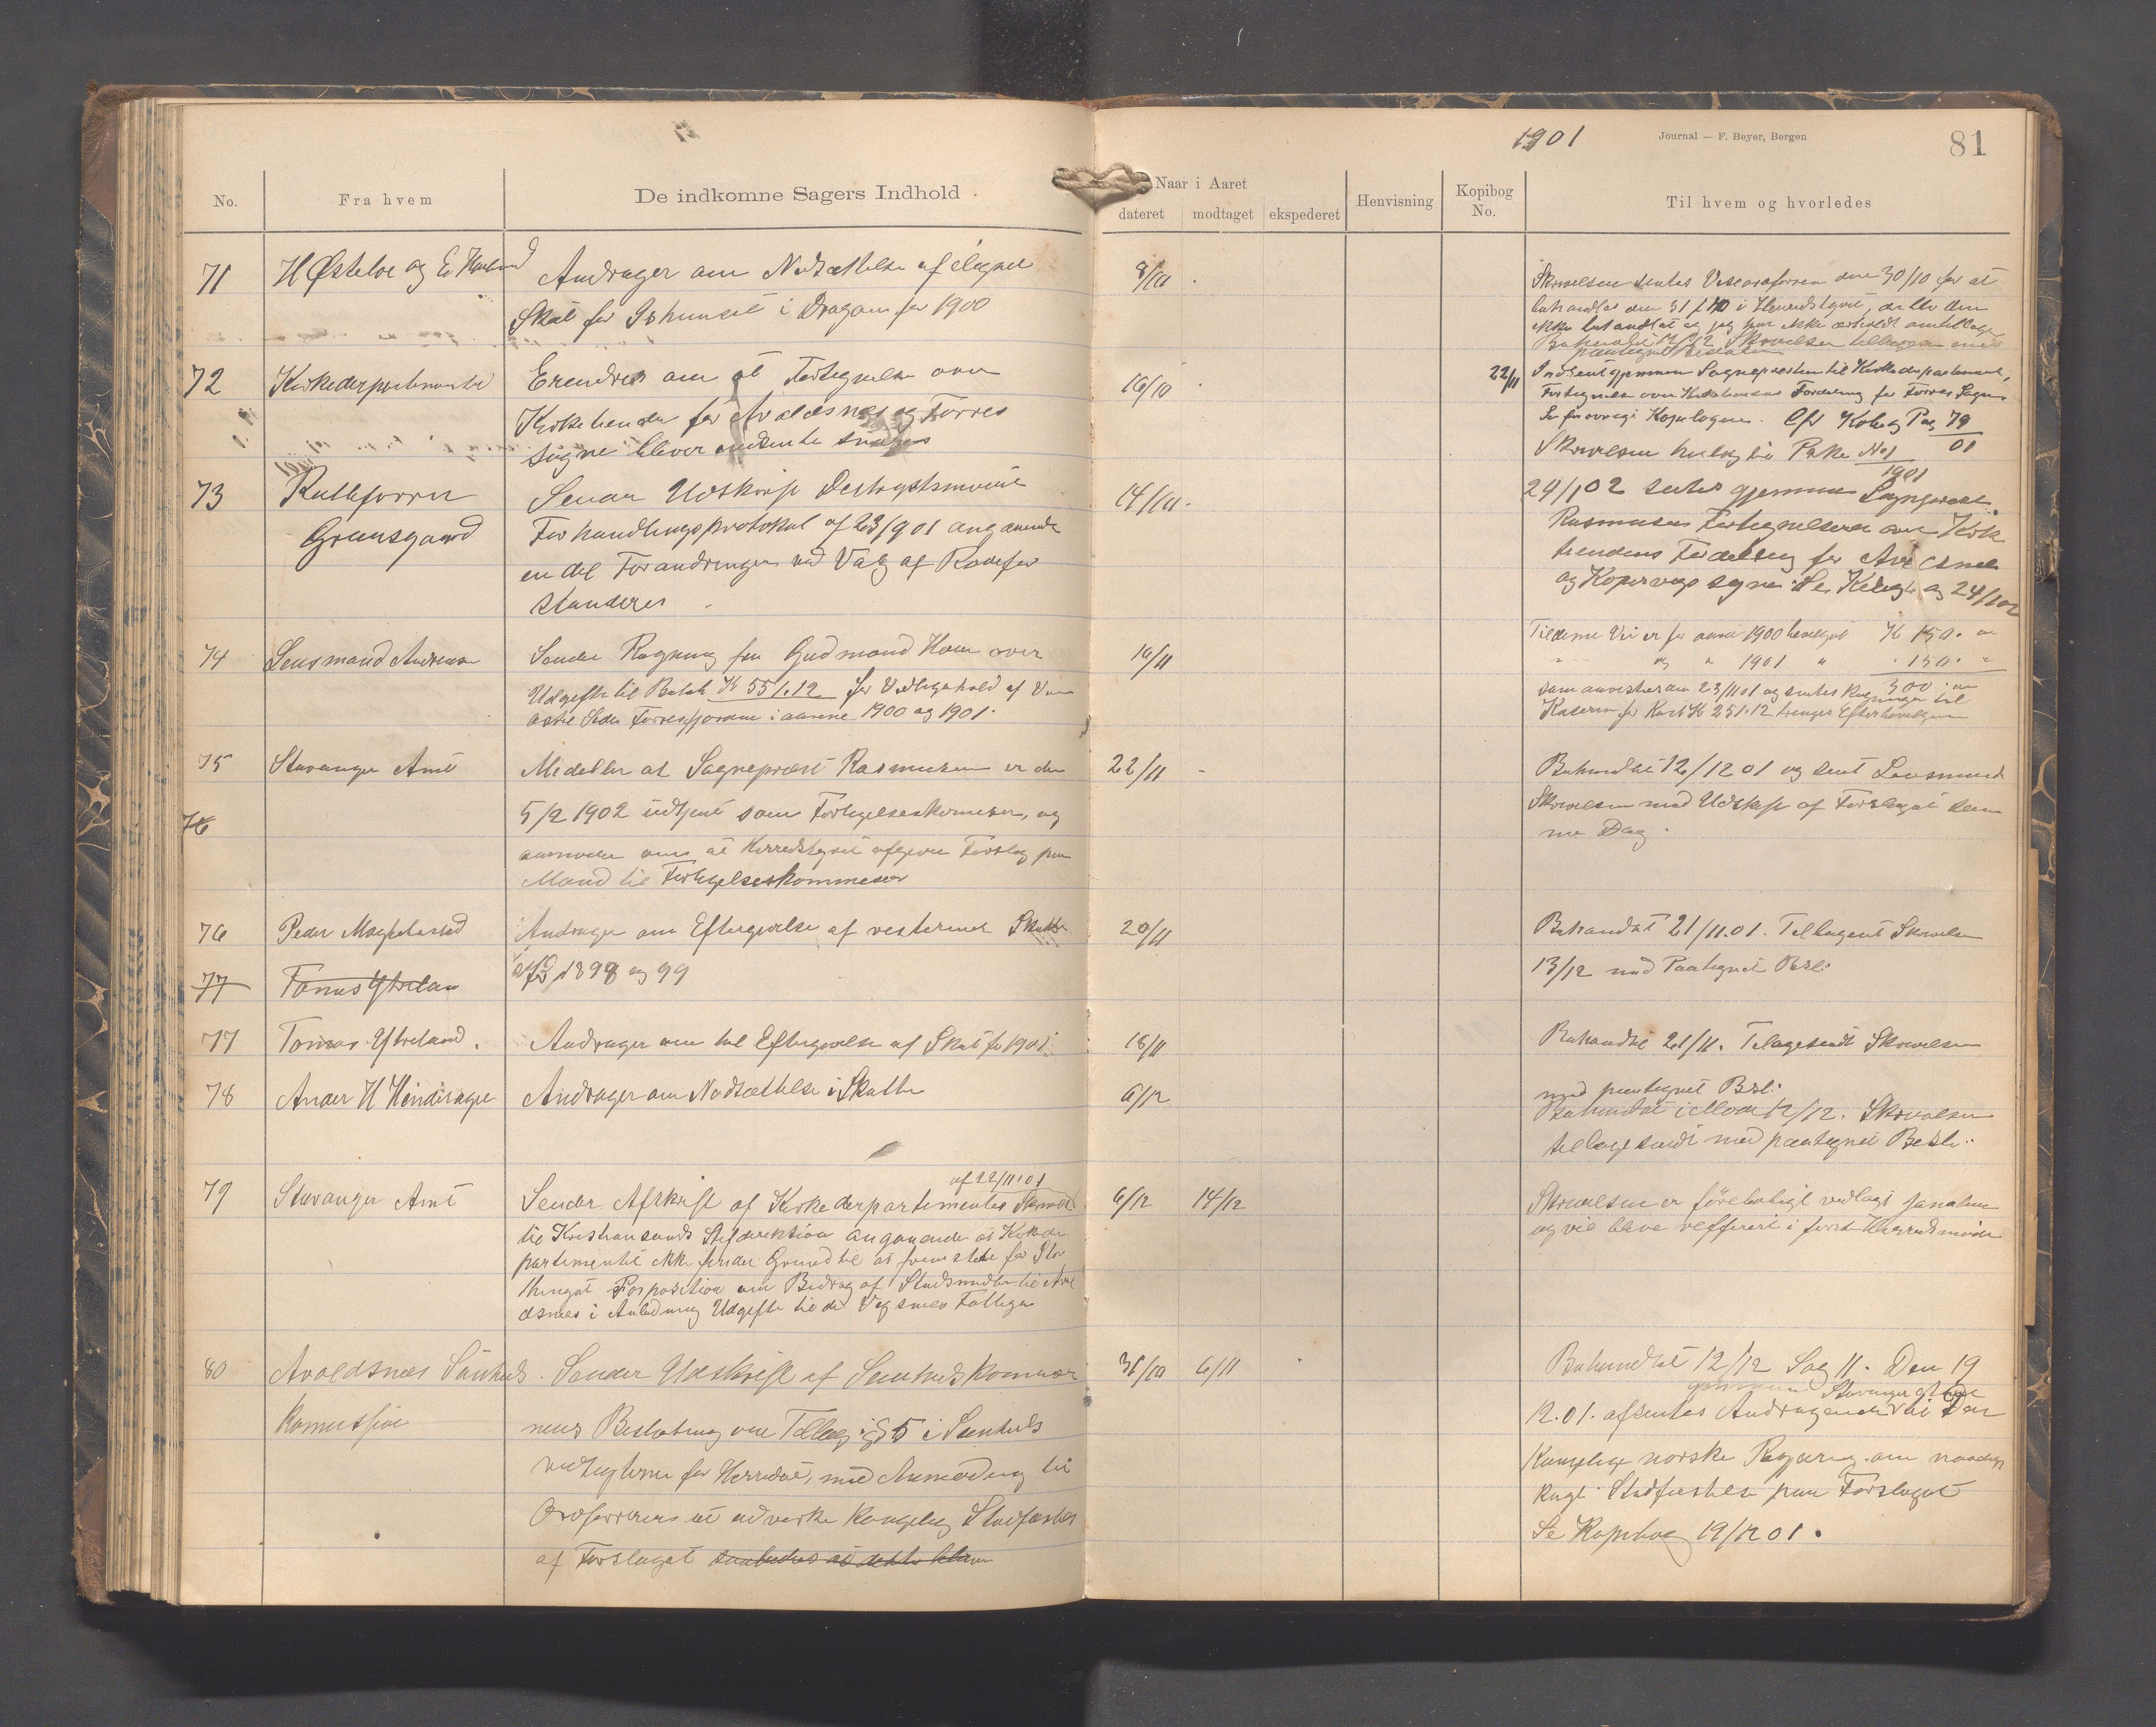 1901
Journal — F. Beyer, Bergen
81
No.
Fra hvem
De indkomne Sagers Indhold
Naar i Aaret
dateret
modtaget
ekspederet
Henvisning
Kopibog
No.
Til hvem og hvorledes
71
H Østebø og
Andrager om Nedsættelse af ilignet
Skat for Ishuset i Dragøen for 1900
8/10
Skrivelsen sentes Viseordføreren den 30/10 for at
behandles den 31/10 i Herredstyret, da blev den
ikke behandlet og jeg har ikke
Behandlet 12/12 Skrivelsen
paategnet
72
Kirkedepartementet
Erindrer om at Fortegnelse over
Kirketiender for Avaldsnes og Torres
Sogne bliver indsente
16/10
22/11
Indsent gjennem Sognepresten til Kirkedepartementet,
Fortegnelse over Kirketiendens Fordeling for Torres Sogn
Se Kopibogen. Cfr Kobog Pag 79
01
Skrivelsen henlagt i Pake No 1
1901
73
Grønsgaard
Sender Udskrift
Forhandlingsprotokol af 23/9 01 angaaende
en del Forandringer ved Valg af Rodefor
standere
14/10
24/1 02 sentes gjennem Sogneprest
Rasmusen Fortegnelsen over Kirk
tiendens Fordeling for Avaldsnes
og Kopervigs sogne Se og 24/1 02
74
Lensmand Andreasen
Sender Regning fra Gudmand Hom over
Udgifter til Beløb Kr 551.12 for Vedligehold af
Torresfjorden i aarene 1900 og 1901.
19/11
Til denne Vei er for aaret 1900 bevilget Kr 150.
" " og " 1901 " " 150. "
300.
som anvistes den 23/11 01 og sentes Regningen til
Kasereren for Rest Kr 251.12 trenges Efterbevilgning
75
Stavanger Amt
Meddeler at Sogneprest Rasmusen er den
5/2 1902 udtjent som Forligelseskomiser, og
anmoder om at Herredstyret afgiver Forslag paa
Mand til Forligelseskommiser
22/11
Behandlet 12/12 01 og sent Lensmand
Skrivelsen med Udskr. af Forslaget sam
me Dag.
76
76
Peder
Andrager om Eftergivelse af resterende Skatte
for 1898 og 99
20/11
Behandlet 21/11.01. Tilbagesent Skrivelsen
13/12 med Paategnet Besl:
77
Tomas Ytreland
77
Tomas Ytreland.
Andrager om hel Eftergivelse af Skat for 1901
18/11
Behandlet 21/11. Tilbagesendt Skrivelsen
med paategnet Besl:
78
Andrager om Nedsættelse i Skatte
6/12
Behandlet i Møde 12/12. Skrivelsen
tilbagesendt med paategnet Besl:
79
Stavanger Amt
af 22/11 01
Sender Afskrift af Kirkedepartementets Skrivelse
til Kristiansands Stiftdirektion angaaende at Kirkede
partementet ikke finder Grund til at fremstete for Stor
thinget Proposition om Bidrag af Statsmidler til Aval
dsnes i Anledning Udgifter til de Vigsnes Fattige
6/12
14/12
Skrivelsen er foreløbigt vedlagt Jurnalen
og vil blive refereret i første Herredsmøde
80
Avaldsnes Sunheds
Komission
Sender Udskrift af Sunhedskommis
nens Beslutning om Tillæg i § 5 i Sunheds
vedtegterne for Herredet, med Anmodning til
Ordføreren at udvirke Kongelig Stadfæstelse
af Forslaget saaledes at dette bliver
31/10
6/11
Behandlet 12/12 Sag 11. Den 19
gjennem Stavanger
12.01. afsentes Andragende til Den
Kongelige norske Regjering om naadigst
Kngl. Stadfestelse paa Forslaget
Se Kopibog 19/12 01.